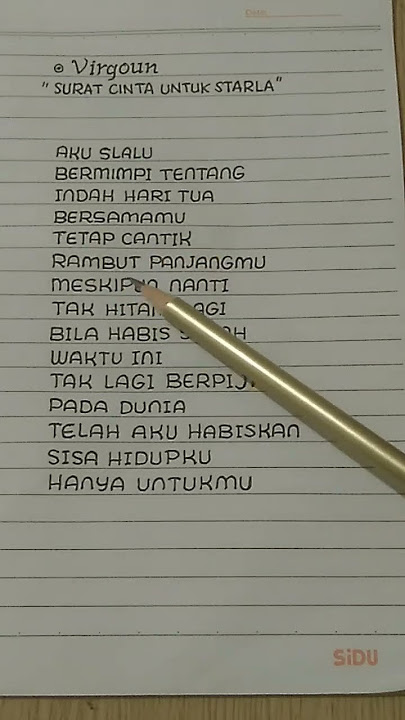 Date
Virgoun
" SURAT CINTA UNTUK STARLA"
AKU SLALU
BERMIMPI TENTANG
INDAH HARI TUA
BERSAMAMU
TETAP CANTIK
RAMBUT PANJANGMU
NANTI
TAK
BILA HABIS
WAKTU INI
TAK LAGI
PADA DUNIA
TELAH AKU HABISKAN
SISA HIDUPKU
HANYA UNTUKMU
SiDU